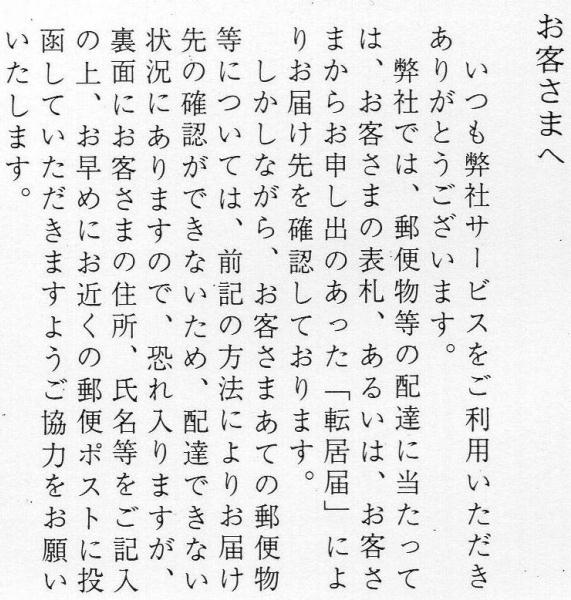 お客さまへ
いつも弊社サービスをご利用いただき
ありがとうございます。
弊社では、郵便物等の配達に当たって
は、お客さまの表札、あるいは、お客さ
まからお申し出のあった「転居届」によ
りお届け先を確認しております。
しかしながら、お客さまあての郵便物
等については、前記の方法によりお届け
先の確認ができないため、配達できない
状況にありますので、恐れ入りますが、
裏面にお客さまの住所、氏名等をご記入
の上、お早めにお近くの郵便ポストに投
函していただきますようご協力をお願い
いたします。